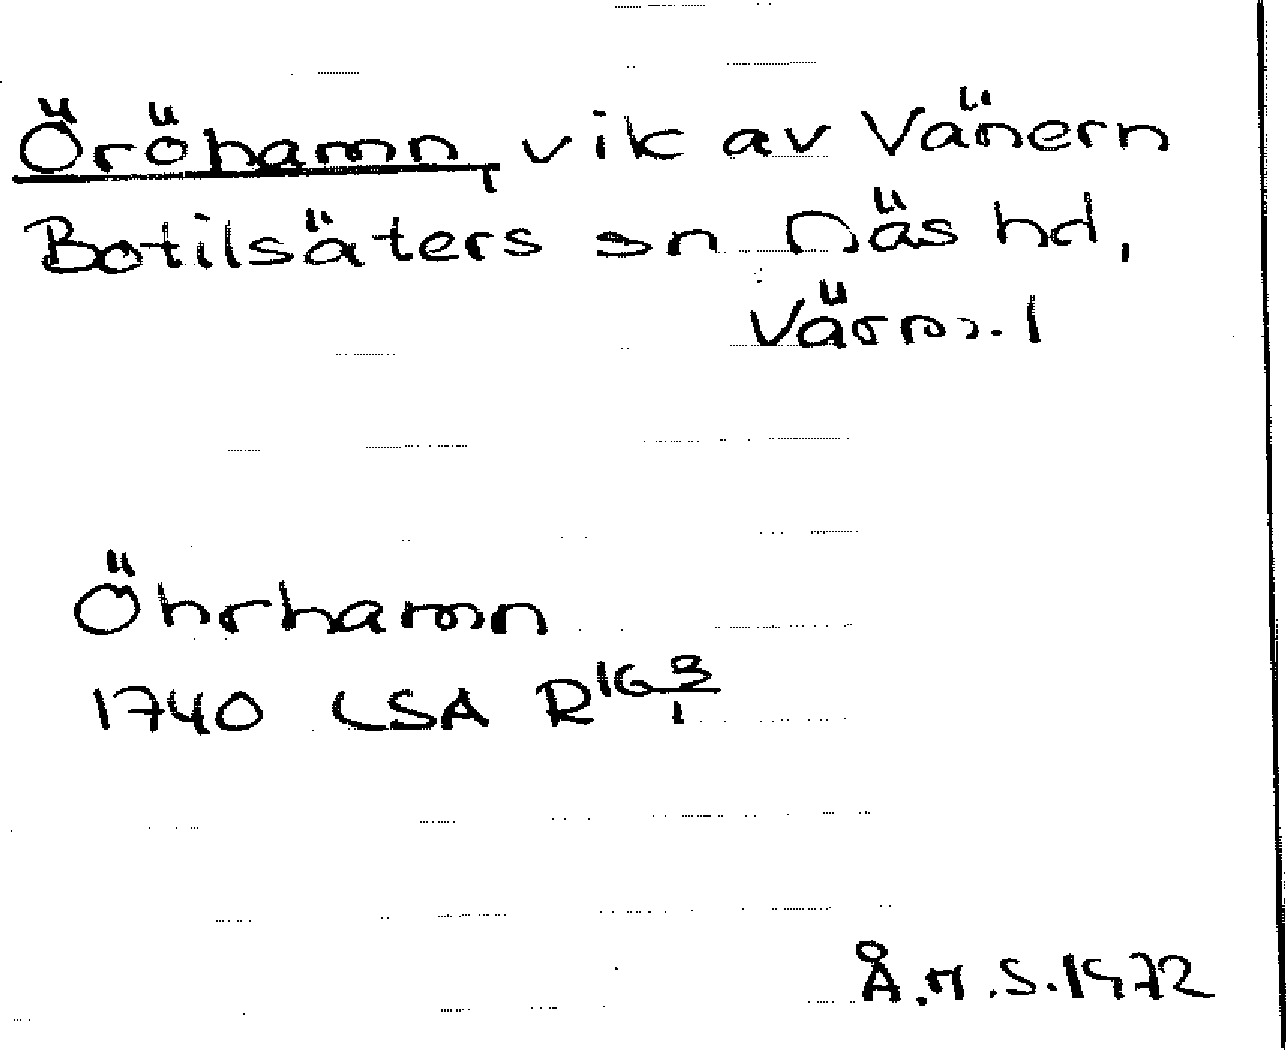 Öröhamn, vik av Vänern
Botilsäters sn Näs hd,
Värml. l
Öhrhamn
1740 LSA R16 9/1
Å.H.S.1972